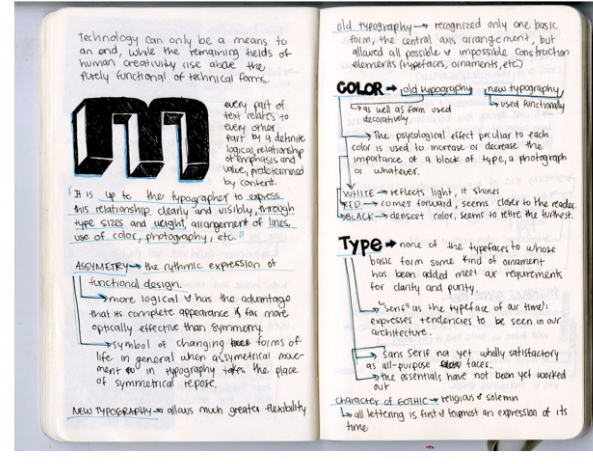 Technology can only be a means to
an end, while the remaining fields of
human creativity rise above the
purely functional of technical forms.
m
every part of
text relates to
every other
part by a definite
logical relationship
of emphasis and
value, predetermined
by content.
"It is up to the typographer to express
this relationship clearly and visibly, through
type sizes and weight, arrangement of lines,
use of color, photography, etc."
ASSYMETRY → the rythmic expression of
functional design.
→ more logical & has the advantage
that its complete appearance is far more
optically effective than symmetry.
→ symbol of changing forms of
life in general when assymetrical move-
ment in typography takes the place
of symmetrical repose.
NEW TYPOGRAPHY → allows much greater flexibility
old typography → recognized only one basic
form, the central axis arrangement, but
allowed all possible & impossible construction
elements (typefaces, ornaments, etc)
COLOR → old typography new typography
→ as well as form used
decoratively
→ used functionally
→ The psycological effect peculiar to each
color is used to increase or decrease the
importance of a block of type, a photograph
or whatever.
WHITE → reflects light, it shines
RED → comes forward, seems closer to the reader.
BLACK → densest color, seems to retire the furthest.
Type → none of the typefaces to whose
basic form some kind of ornament
has been added meet our requirements
for clarity and purity.
→ "serif" as the typeface of our time:
expresses tendencies to be seen in our
architecture.
→ sans serif not yet wholly satisfactory
as all-purpose faces.
→ the essentials have not been yet worked
out
CHARACTER OF GOTHIC → religious & solemn
→ all lettering is first & foremost an expression of its
time